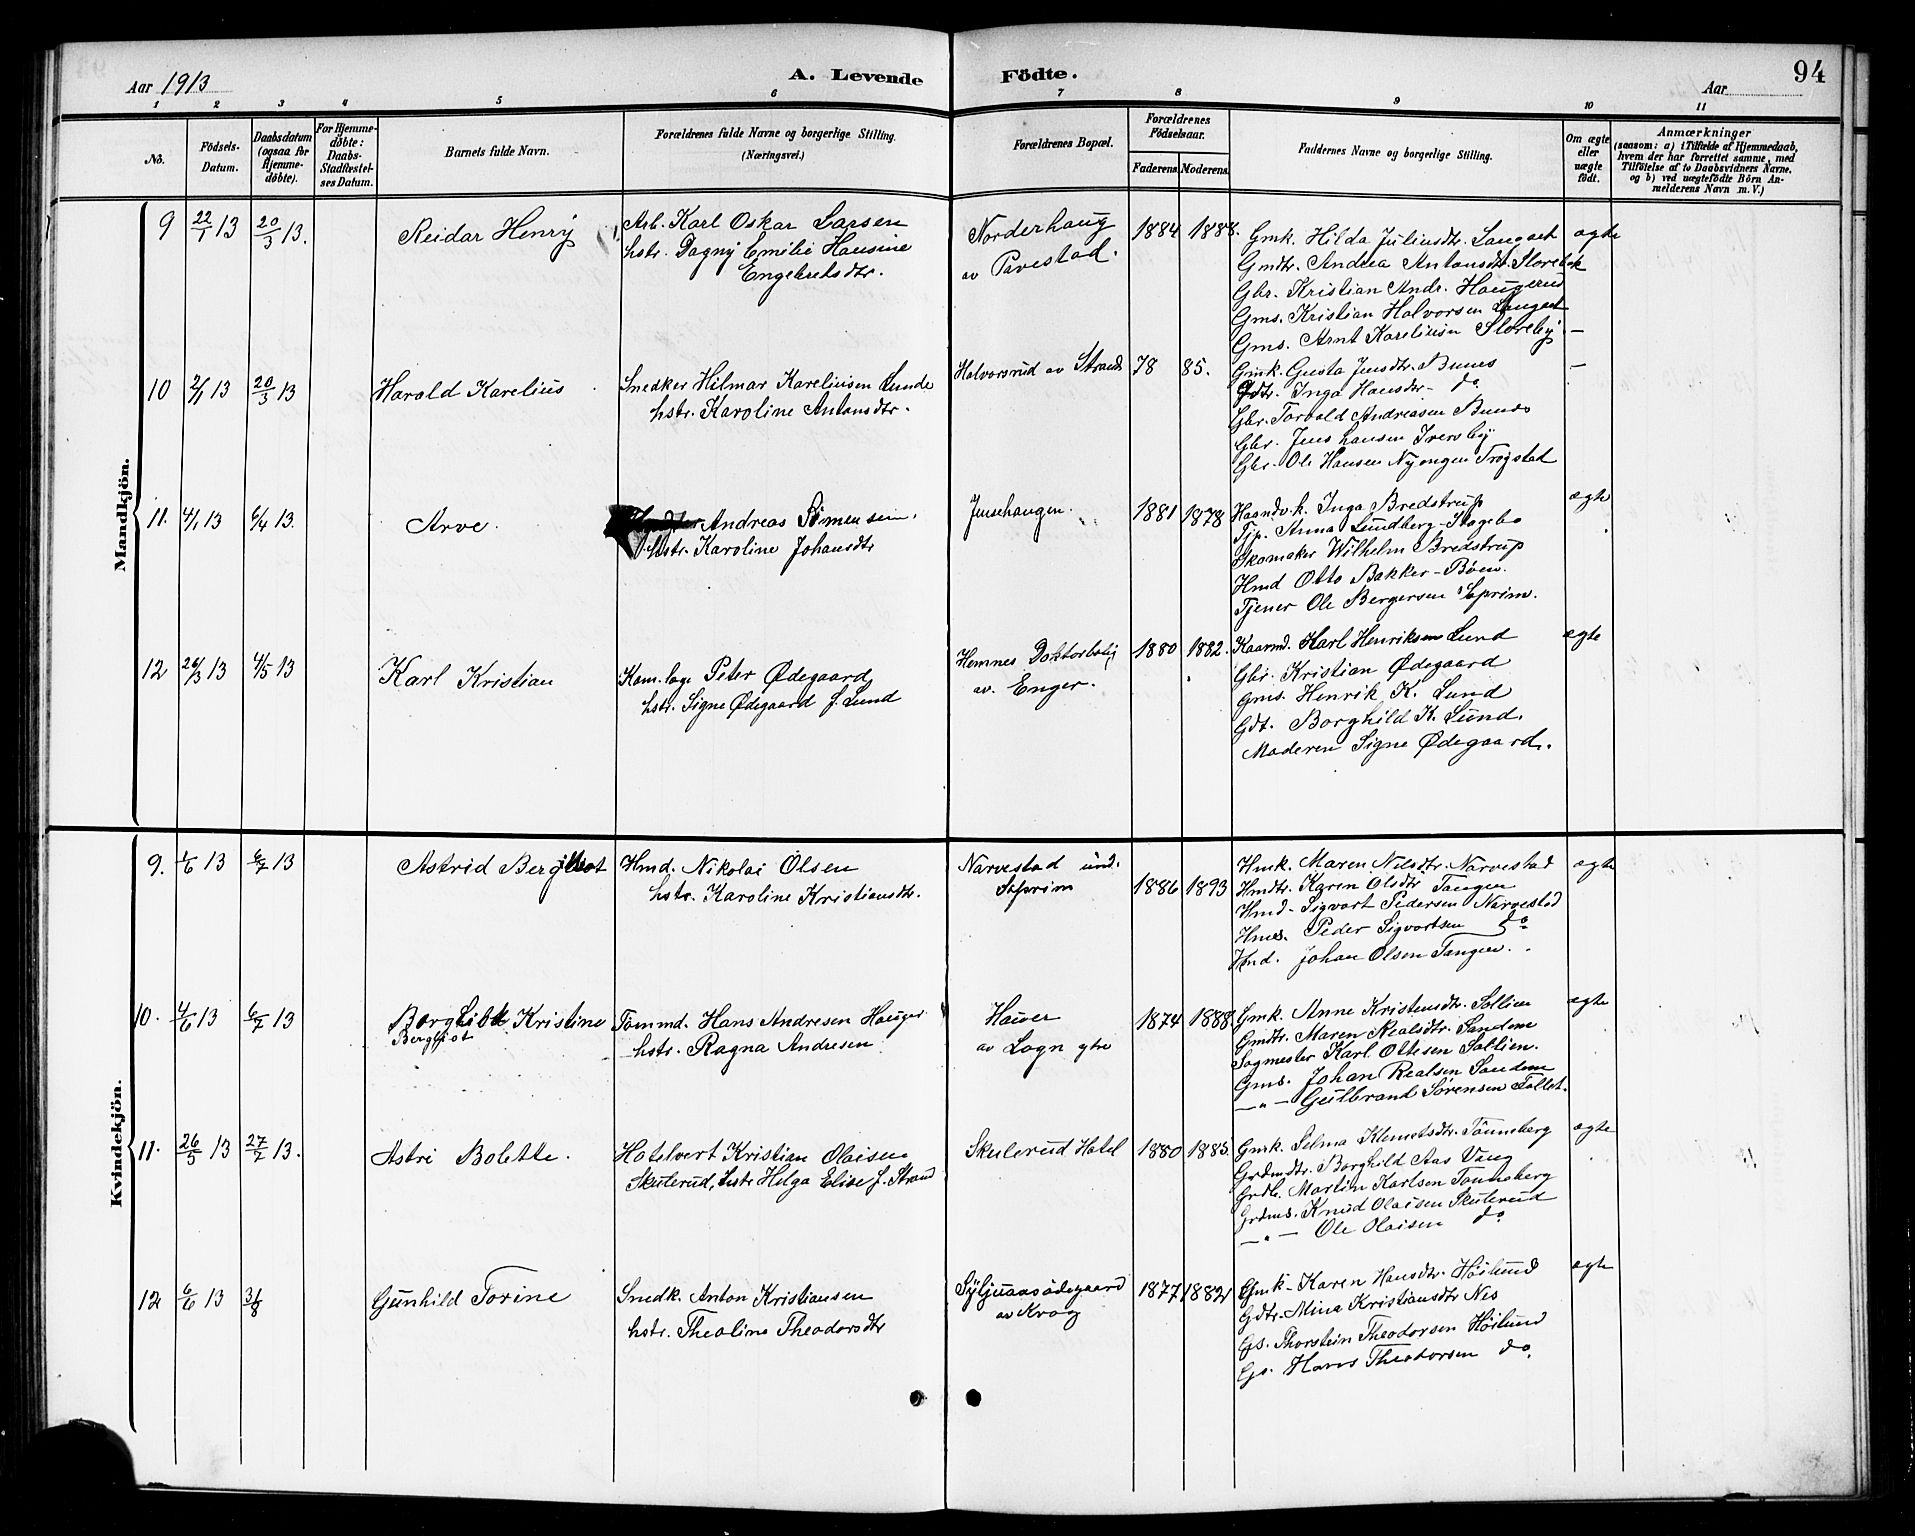 Aar 1913
A. Levende Födte.
Aar
94
1 2 3 4 5 6 7 8 9 10 11
No.
Födsels-Datum.
Daabsdatum (ogsaa for Hjemme-döbte).
For Hjemme-döbte: Daabs-Stadfæstel-ses Datum.
Barnets fulde Navn.
Forældrenes fulde Navne og borgerlige Stilling. (Næringsvei.)
Forældrenes Bopæl.
Forældrenes Födselsaar.
Faderens. Moderens.
Faddernes Navne og borgerlige Stilling.
Om ægte eller uægte födt.
Anmærkninger
(saasom: a) i Tilfælde af Hjemmedaab, hvem der har forrettet samme, med Tilföielse af to Daabsvidners Navne. og b) ved uægtefödte Börn An-melderens Navn m. V.)
Mandkjön.
9 22/1 13 20/3 13. Reidar Henry
Arb. Karl Oskar Larsen
hstr. Dagny Emilie Hansine
Engebretsdtr.
Norderhaug
av Pavestad.
1884 1888.
Gmk. Hilda Juliusdtr. Langset
Gmdtr. Andrea Antonsdtr. Storebæk
Gbr. Kristian Andr. Haugerud
Gms. Kristian Halvorsen Langset
Gms. Arnt Kareliusen Storeby
ægte
—
10 2/1 13 20/3 13 Harald Karelius
Snedker Hilmar Kareliusen Lunde
hstr. Karoline Antonsdtr.
Halvorsrud av Strand
78 85.
Gmk. Gusta Jensdtr. Bunes
Gdtr. Inga Hansdtr - do
Gbr. Torvald Andreasen Bunes
Gbr. Jens Hansen
Gbr. Ole Hansen Nyengen Trøgstad
—
11. 4/1 13 6/4 13. Arve.
Andreas Simensen.
hstr. Karoline Johansdtr
Jensehaugen.
1881 1878
Haandv. k. Inga Bredstrup
Tjp. Anna Lundberg - Stagebo
Skomaker Wilhelm Bredstrup
Hmd Otto Bakker - Böen.
Tjener Ole Bergersen Soprim.
ægte
12 26/3 13 4/5 13 Karl Kristian
Kom. læge Peter Ødegaard
hstr. Signe Ødegaard f. Lund
Hemnes Doktorbolig
av. Enger.
1880 1882.
Kaarmd. Karl Henriksen Lund
Gbr. Kristian Ødegaard
Gms. Henrik K. Lund
Gdt. Borghild K. Lund.
Moderen Signe Ødegaard.
ægte
Kvindekjön.
9. 1/6 13 6/7 13 Astrid Bergliot
Hmd. Nikolai Olsen
hstr. Karoline Kristiansdtr.
Narvestad und.
Soprim
1886 1893
Hmk. Maren Nilsdtr. Narvestad
Hmdtr. Karen Olsdtr Tangen
Hmd - Sigvart Pedersen Narvestad
Hms. Peder Sigvartsen do
Hmd. Johan Olsen Tangen.
ægte
10. 4/6 13 6/7 13 Kristine
Bergliot
Tømmd. Hans Andresen Hauger
hstr. Ragna Andresen
av Logn
1874 1888
Gmk. Anne Kristensdtr. Sollien
Gmdtr. Maren Realsdtr. Sandem
Sagmester Karl Ottesen Sollien.
Gms. Johan Realsen Sandem
—"— Gulbrand Sørensen Tollet.
ægte
11. 26/5 13 27/7 13. Astri Bolette.
Hotelvert Kristian Olaisen
Skulerud, hstr Helga Elise f. Strand
Skulerud Hotel
1880 1885.
Gmk. Selma Klemetsdtr. Tönneberg
Grdmdtr. Borghild Aas Vang
Grdb. Martin Karlsen Tønneberg
Grdms. Knud Olaisen Skulerud
—"— Ole Olaisen do
ægte
12 6/6 13 3/8 Gunhild Torine
Snedk. Anton Kristiansen
hstr. Theoline Theodorsdtr
Syljuansødegaard
av Krog
1877 1882
Gmk - Karen Hansdtr. Höilund
Gdtr. Mina Kristiansdtr Nes
Gs. Thorstein Theodorsen Höilund
Gs. Hans Theodorsen do.
ægte